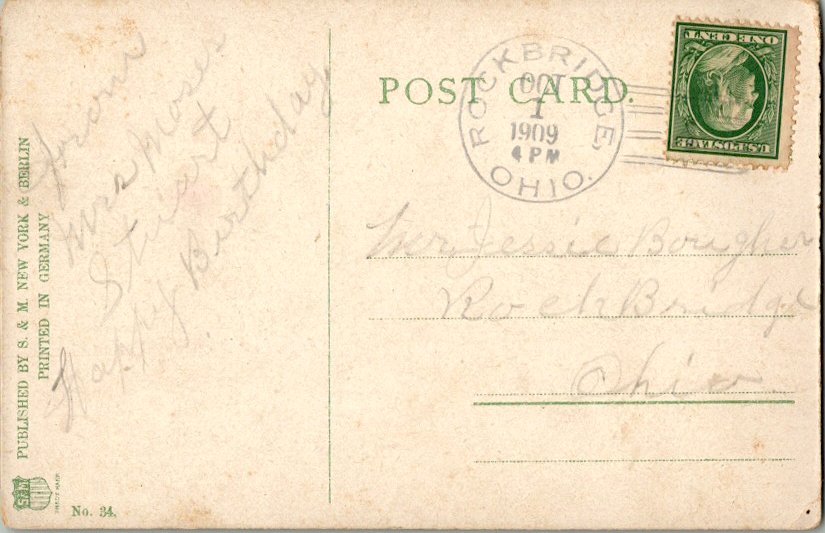 from
Mrs Moses
Stuart
Happy Birthday
PUBLISHED BY S. & M. NEW YORK & BERLIN
PRINTED IN GERMANY
S&M
TRADE MARK
No. 34.
POST CARD.
ROCKBRIDGE,
OCT
1
1909
4 PM
OHIO.
U.S. POSTAGE
ONE CENT
Mr Jessie Bougher
Rock Bridge
Ohio